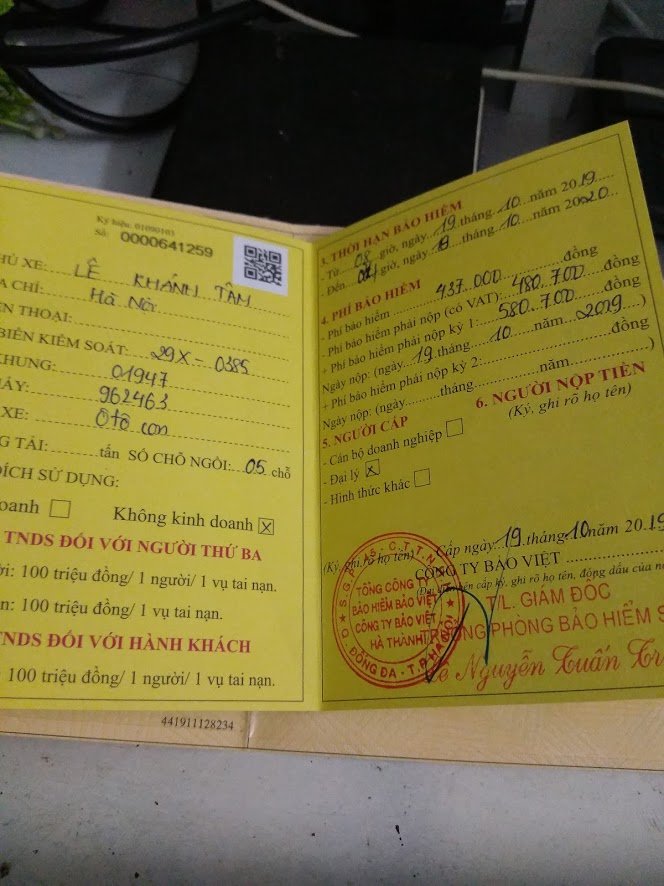 Ký hiệu. 01090103
Số: 0000641259
HỦ XE: LÊ KHÁNH TÂM
A CHỈ: Hà Nội
ỆN THOẠI:
BIỂN KIỂM SOÁT: 29X - 0385
KHUNG: 01947
ÁY: 962463
XE: Ôtô con
G TẢI: tấn SỐ CHỖ NGỒI: 05 chỗ
ĐÍCH SỬ DỤNG:
oanh Không kinh doanh
TNDS ĐỐI VỚI NGƯỜI THỨ BA
ời: 100 triệu đồng/ 1 người/ 1 vụ tai nạn.
n: 100 triệu đồng/ 1 vụ tai nạn.
TNDS ĐỐI VỚI HÀNH KHÁCH
100 triệu đồng/ 1 người/ 1 vụ tai nạn.
441911128234
3. THỜI HẠN BẢO HIỂM
- Từ 08 giờ, ngày 19 tháng 10 năm 2019
- Đến giờ, ngày 18 tháng 10 năm 2020
4. PHÍ BẢO HIỂM
- Phí bảo hiểm 437.000 đồng
- Phí bảo hiểm phải nộp (có VAT): 480.700 đồng
+ Phí bảo hiểm phải nộp kỳ 1: 580.700 đồng
Ngày nộp: (ngày 19 tháng 10 năm 2019)
+ Phí bảo hiểm phải nộp kỳ 2: đồng
Ngày nộp: (ngày tháng năm )
5. NGƯỜI CẤP
6. NGƯỜI NỘP TIỀN
(Ký, ghi rõ họ tên)
- Cán bộ doanh nghiệp
- Đại lý
- Hình thức khác
Cấp ngày 19 tháng 10 năm 2019
(Ký, ghi rõ họ tên)
CÔNG TY BẢO VIỆT
cấp ký, ghi rõ họ tên, đóng dấu của
T/L. GIÁM ĐỐC
TRƯỞNG PHÒNG BẢO HIỂM S
Lê Nguyễn Tuấn
TỔNG CÔNG TY
BẢO HIỂM BẢO VIỆT
CÔNG TY BẢO VIỆT
HÀ THÀNH
ĐỐNG ĐA - T.P HÀ